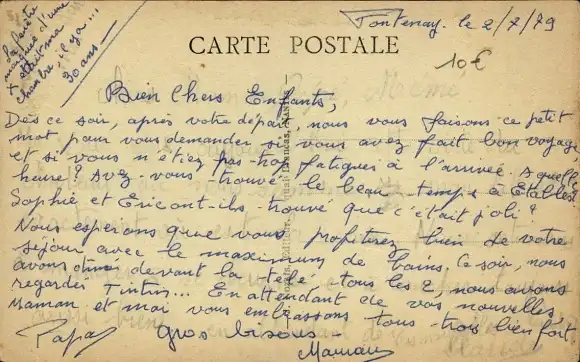 Fontenay. le 2/7/79
CARTE POSTALE
10€
La fenêtre
marquée d'une
+ était ma
chambre il y a...
30 ans -
Bien Chers Enfants,
Dès ce soir, après votre départ, nous vous faisons ce petit
mot pour vous demander si vous avez fait bon voyage
et si vous n'étiez pas trop fatigués à l'arrivée. A quelle
heure? Avez-vous trouvé le beau temps à Etables?
Sophie et Eric ont-ils trouvé que c'était joli?
Nous espérons que vous profiterez bien de votre
séjour avec le maximum de bains. Ce soir, nous
avons dîné devant la télé tous les 2, nous avons
regardé Tintin... En attendant de vos nouvelles,
Maman et moi vous embrassons tous trois bien fort.
Gros bisous -
Papa
Maman